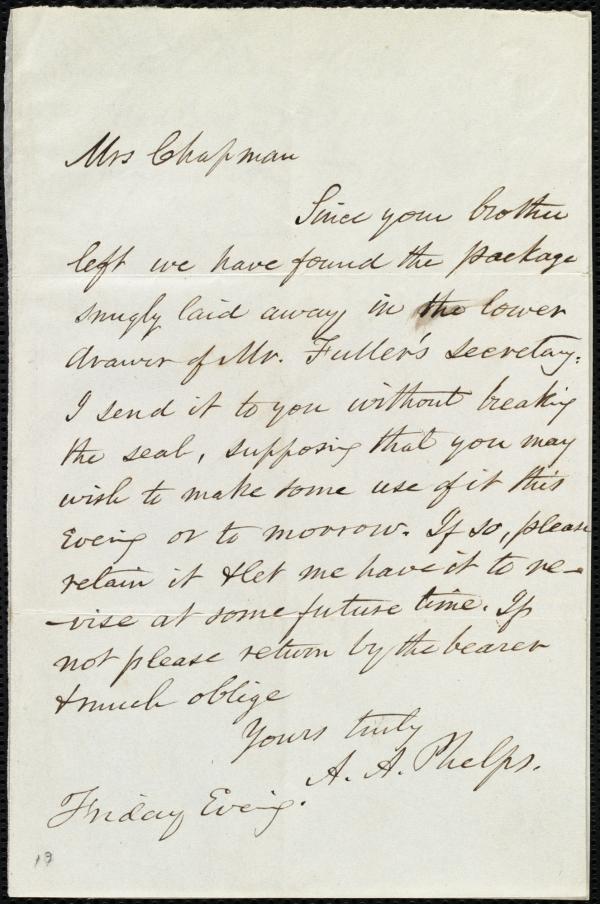 Mrs Chapman
Since your brother
left we have found the package
snugly laid away in the lower
drawer of Mr. Fuller's secretary.
I send it to you without breaking
the seal, supposing that you may
wish to make some use of it this
Eveing or to morrow. If so, please
retain it & let me have it to re-
-vise at some future time. If
not please return by the bearer
& much oblige
Yours truly
A. A. Phelps.
Friday Eveing.
19